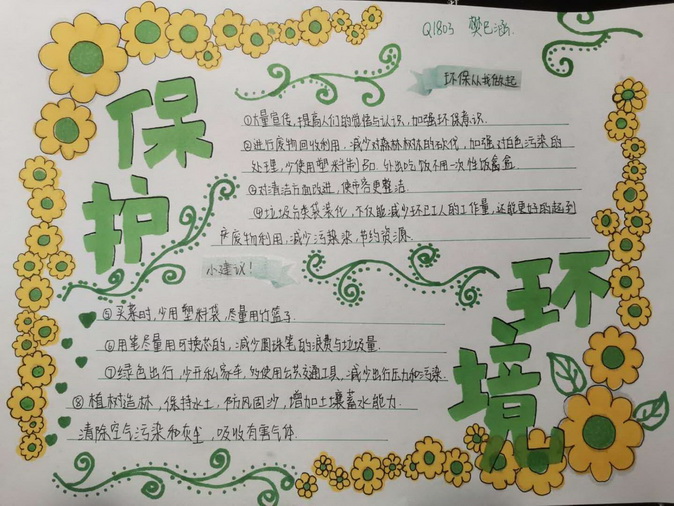 Q1803 樊已涵
保护
环境
环保从我做起
①大量宣传,提高人们的觉悟与认识,加强环保意识.
②进行废物回收利用,减少对森林树木的砍伐,加强对白色污染的
处理,少使用塑料制品 外出吃饭不用一次性饭盒.
③对清洁方面改进,使市容更整洁.
④垃圾分类袋装化,不仅能减少环卫工人的工作量,还能更好的起到
废物利用,减少污染染,节约资源.
小建议!
⑤买菜时,少用塑料袋,尽量用竹篮子.
⑥用笔尽量用可换芯的,减少圆珠笔的浪费与垃圾量.
⑦绿色出行,少开私家车,多使用公共交通工具,减少出行压力和污染.
⑧植树造林,保持水土,防风固沙,增加土壤蓄水能力.
清除空气污染和灰尘,吸收有害气体.